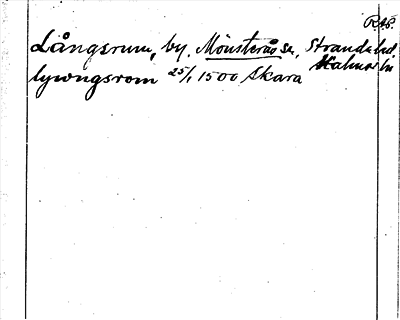 RAp.
Långsrum, by. Mönsterås sn, Stranda hd
Kalmar län
lywngsrom 25/1 1500 Skara